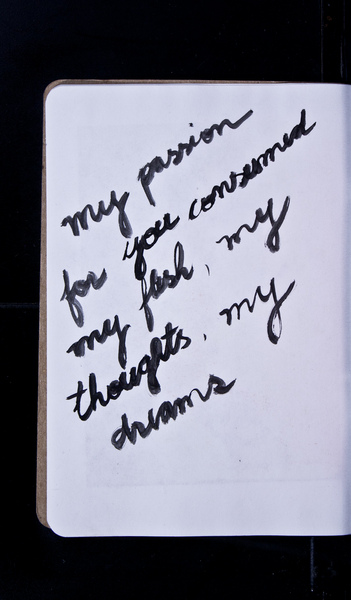 my passion
for you consumed
my flesh, my
thoughts, my
dreams